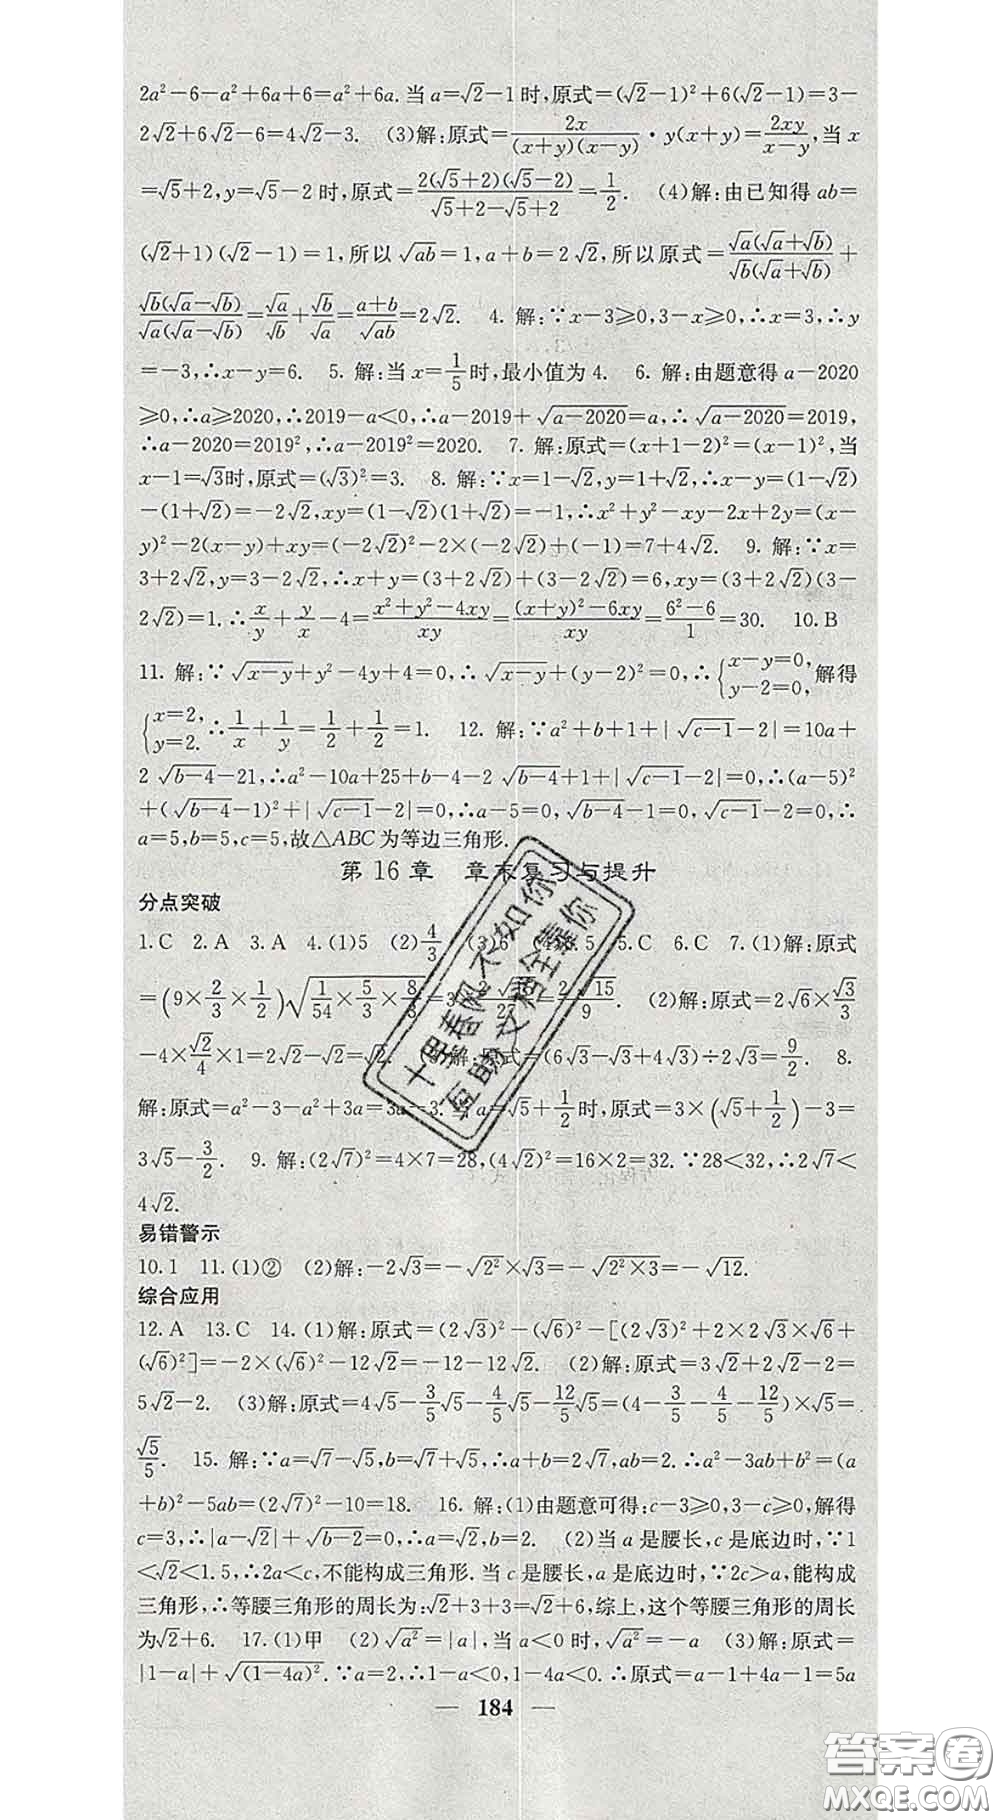 2a²－6－a²＋6a＋6＝a²＋6a.当a＝√2－1时,原式＝(√2－1)²＋6(√2－1)＝3－
2√2＋6√2－6＝4√2－3. (3)解:原式＝2x/((x＋y)(x－y))·y(x＋y)＝2xy/(x－y),当x
＝√5＋2,y＝√5－2时,原式＝2(√5＋2)(√5－2)/(√5＋2－√5＋2)＝1/2. (4)解:由已知得ab＝
(√2＋1)(√2－1)＝1,所以√ab＝1,a＋b＝2√2,所以原式＝√a(√a＋√b)/(√b(√a＋√b))＋
√b(√a－√b)/(√a(√a－√b))＝√a/√b＋√b/√a＝(a＋b)/√ab＝2√2. 4. 解:∵x－3≥0,3－x≥0,∴x＝3,∴y
＝－3,∴x－y＝6. 5. 解:当x＝1/5时,最小值为4. 6. 解:由题意得a－2020
≥0,∴a≥2020,∴2019－a＜0,∴a－2019＋√(a－2020)＝a,∴√(a－2020)＝2019,
∴a－2020＝2019²,∴a－2019²＝2020. 7. 解:原式＝(x＋1－2)²＝(x－1)²,当
x－1＝√3时,原式＝(√3)²＝3. 8. 解:∵x＝1－√2,y＝1＋√2,∴x－y＝(1－√2)
－(1＋√2)＝－2√2,xy＝(1－√2)(1＋√2)＝－1,∴x²＋y²－xy－2x＋2y＝(x－
y)²－2(x－y)＋xy＝(－2√2)²－2×(－2√2)＋(－1)＝7＋4√2. 9. 解:∵x＝
3＋2√2,y＝3－2√2,∴x＋y＝(3＋2√2)＋(3－2√2)＝6,xy＝(3＋2√2)(3－
2√2)＝1.∴x/y＋y/x－4＝(x²＋y²－4xy)/xy＝((x＋y)²－6xy)/xy＝(6²－6)/1＝30. 10.B
11. 解:∵√(x－y)＋y²－4y＋4＝0,∴√(x－y)＋(y－2)²＝0,∴{x－y＝0, y－2＝0,解得
{x＝2, y＝2.∴1/x＋1/y＝1/2＋1/2＝1. 12. 解:∵a²＋b＋1＋|√(c－1)－2|＝10a＋
2√(b－4)－21,∴a²－10a＋25＋b－4－2√(b－4)＋1＋|√(c－1)－2|＝0,∴(a－5)²
＋(√(b－4)－1)²＋|√(c－1)－2|＝0,∴a－5＝0,√(b－4)－1＝0,√(c－1)－2＝0,∴
a＝5,b＝5,c＝5,故△ABC为等边三角形.
第16章 章末复习与提升
分点突破
1.C 2.A 3.A 4.(1)5 (2)4/3 (3)6 5 5.C 6.C 7.(1)解:原式
＝(9×2/3×1/2)√(1/54×5/3×8/3)＝ ＝2√15/9. (2)解:原式＝2√6×√3/3
－4×√2/4×1＝2√2－√2＝√2. 解:原式＝(6√3－√3＋4√3)÷2√3＝9/2. 8.
解:原式＝a²－3－a²＋3a＝3a－3.当a＝√5＋1/2时,原式＝3×(√5＋1/2)－3＝
3√5－3/2. 9. 解:(2√7)²＝4×7＝28,(4√2)²＝16×2＝32.∵28＜32,∴2√7＜
4√2.
易错警示
10.1 11.(1)② (2)解:－2√3＝－√2²×√3＝－√(2²×3)＝－√12.
综合应用
12.A 13.C 14.(1)解:原式＝(2√3)²－(√6)²－[(2√3)²＋2×2√3×√6＋
(√6)²]＝－2×(√6)²－12√2＝－12－12√2. (2)解:原式＝3√2＋2√2－2＝
5√2－2. (3)解:原式＝4√5－3/5√5－4/5√5－12/5√5＝(4－3/5－4/5－12/5)×√5＝
√5/5. 15. 解:∵a＝√7－√5,b＝√7＋√5,∴a＋b＝2√7,ab＝2.∴a²－3ab＋b²＝(a
＋b)²－5ab＝(2√7)²－10＝18. 16. 解:(1)由题意可得:c－3≥0,3－c≥0,解得
c＝3,∴|a－√2|＋√(b－2)＝0,∴a＝√2,b＝2. (2)当a是腰长,c是底边时,∵1
＜√2＜1.5,∴2a＜c,不能构成三角形.当c是腰长,a是底边时,∵2c＞a,能构成
三角形,∴等腰三角形的周长为:√2＋3＋3＝√2＋6,综上,这个等腰三角形的周长
为√2＋6. 17.(1)甲 (2)√a²＝|a|,当a＜0时,√a²＝－a (3)解:原式＝
|1－a|＋√(1－4a)².∵a＝2,∴1－a＜0,1－4a＜0.∴原式＝a－1＋4a－1＝5a
— 184 —
十里春风不如你
互助文档全靠你
答案圈
MXQE.COM